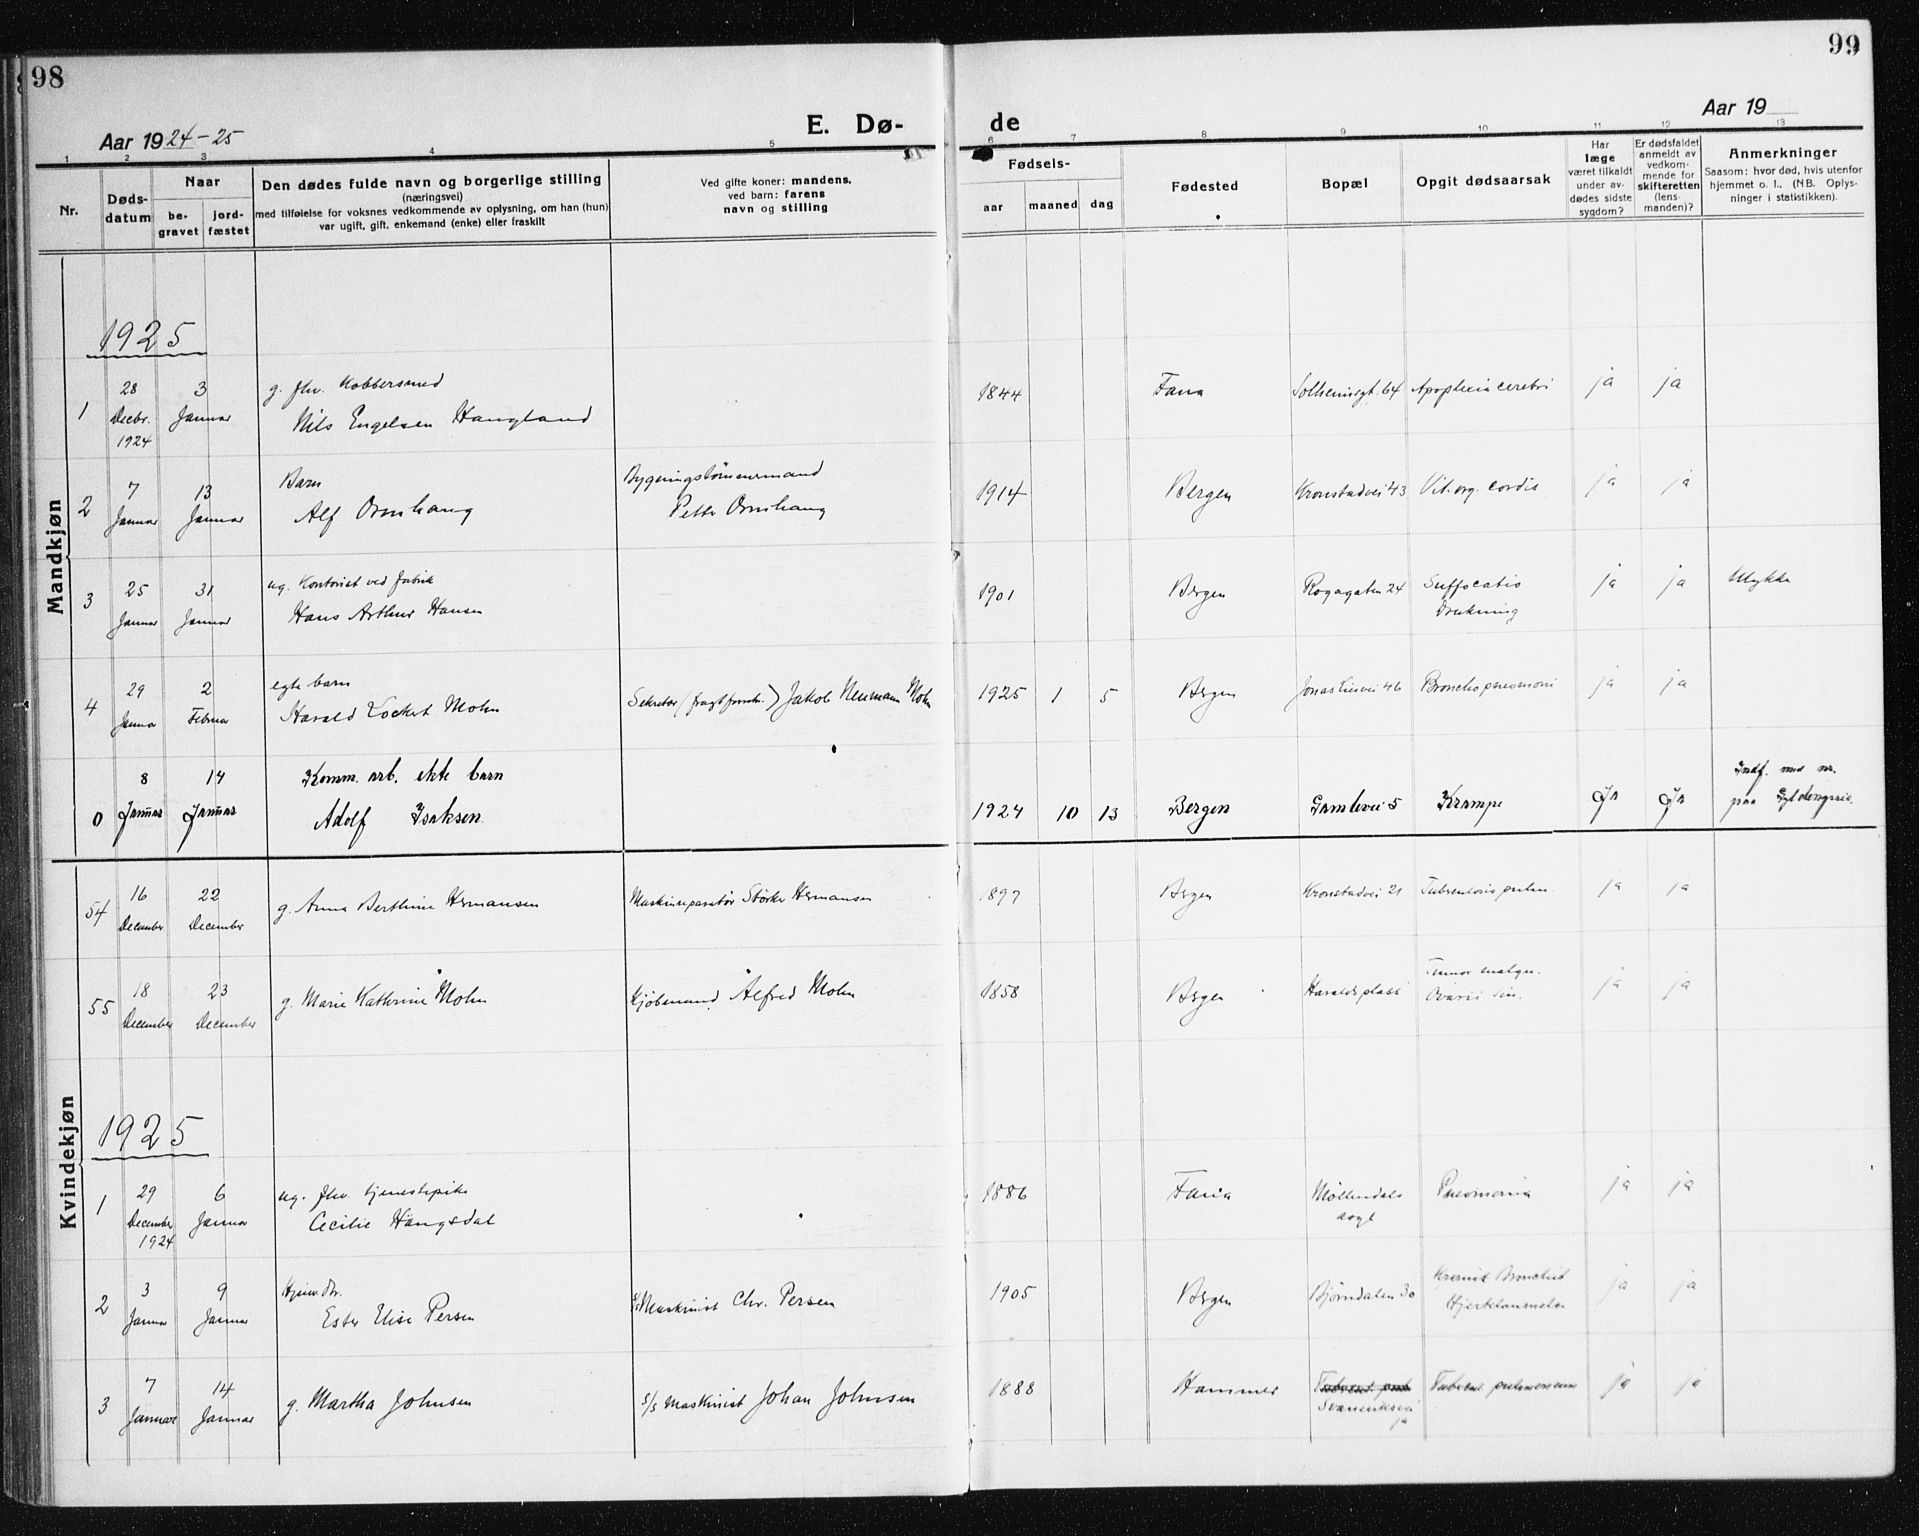 98
99
Aar 1924-25
E. Dø-
de
Aar 19
1 2 3 4 5 6 7 8 9 10 11 12 13
Nr.
Døds-
datum
Naar
be-
gravet
jord-
fæstet
Den dødes fulde navn og borgerlige stilling
(næringsvei)
med tilføielse for voksnes vedkommende av oplysning, om han (hun)
var ugift, gift, enkemand (enke) eller fraskilt
Ved gifte koner: mandens,
ved barn: farens
navn og stilling
Fødsels-
aar maaned dag
Fødested
Bopæl
Opgit dødsaarsak
Har
læge
været tilkaldt
under av-
dødes sidste
sygdom?
Er dødsfaldet
anmeldt av
vedkom-
mende for
skifteretten
(lens-
manden)?
Anmerkninger
Saasom: hvor død, hvis utenfor
hjemmet o. l., (NB. Oplys-
ninger i statistikken).
Mandkjøn
1925
1 28 Decbr. 1924 3 Januar g. fhv. Kobbersmed
Nils Engelsen Haugland 1844 Fana Solheimsgt. 64 Apoplexia cerebri ja ja
2 7 Januar 13 Januar Barn
Alf Ormhaug Bygningstømmermand
Petter Ormhaug 1914 Bergen Kronstadvei 43 Vit. org. cordis ja ja
3 25 Januar 31 Januar ug. Kontorist ved fabrik
Hans Arthur Hansen 1901 Bergen 24 Suffocatio
Drukning ja ja Ulykke
4 29 Januar 2 Februar egte barn
Harald Lockert Mohn Sekretær Jakob Neumann Mohn 1925 1 5 Bergen Jonas Liesvei 46 Bronchopneumoni ja ja
0 8 Januar 14 Januar Komm. arb. ekte barn
Adolf Isaksen 1924 10 13 Bergen Gamlevei 5 Krampe Ja Ja Indf. med nr.
paa
Kvindekjøn
54 16 December 22 December g. Anna Berthine Hermansen Maskinreparatør Størker Hermansen 1897 Bergen Kronstadvei 21 Tuberculosis pulm. ja ja
55 18 December 23 December g. Marie Kathrine Mohn Kjøbmand Alfred Mohn 1858 Bergen Haraldsplass Tumor malign.
Ovarii sin. ja ja
1925
1 29 December 1924 6 Januar ug. fhv. tjenestepike
Cecilie Haugsdal 1886 Fana Møllendals Pneumonia ja ja
2 3 Januar 9 Januar Hjemv. Dtr.
Ester Elise Persen Maskinist Chr. Persen 1905 Bergen Bjørndalen 30 Kronisk Bronchit
Hjertelammelse ja ja
3 7 Januar 14 Januar g. Martha Johnsen s/s Maskinist Johan Johnsen 1888 Hammer Tubercul. pulmonum ja ja